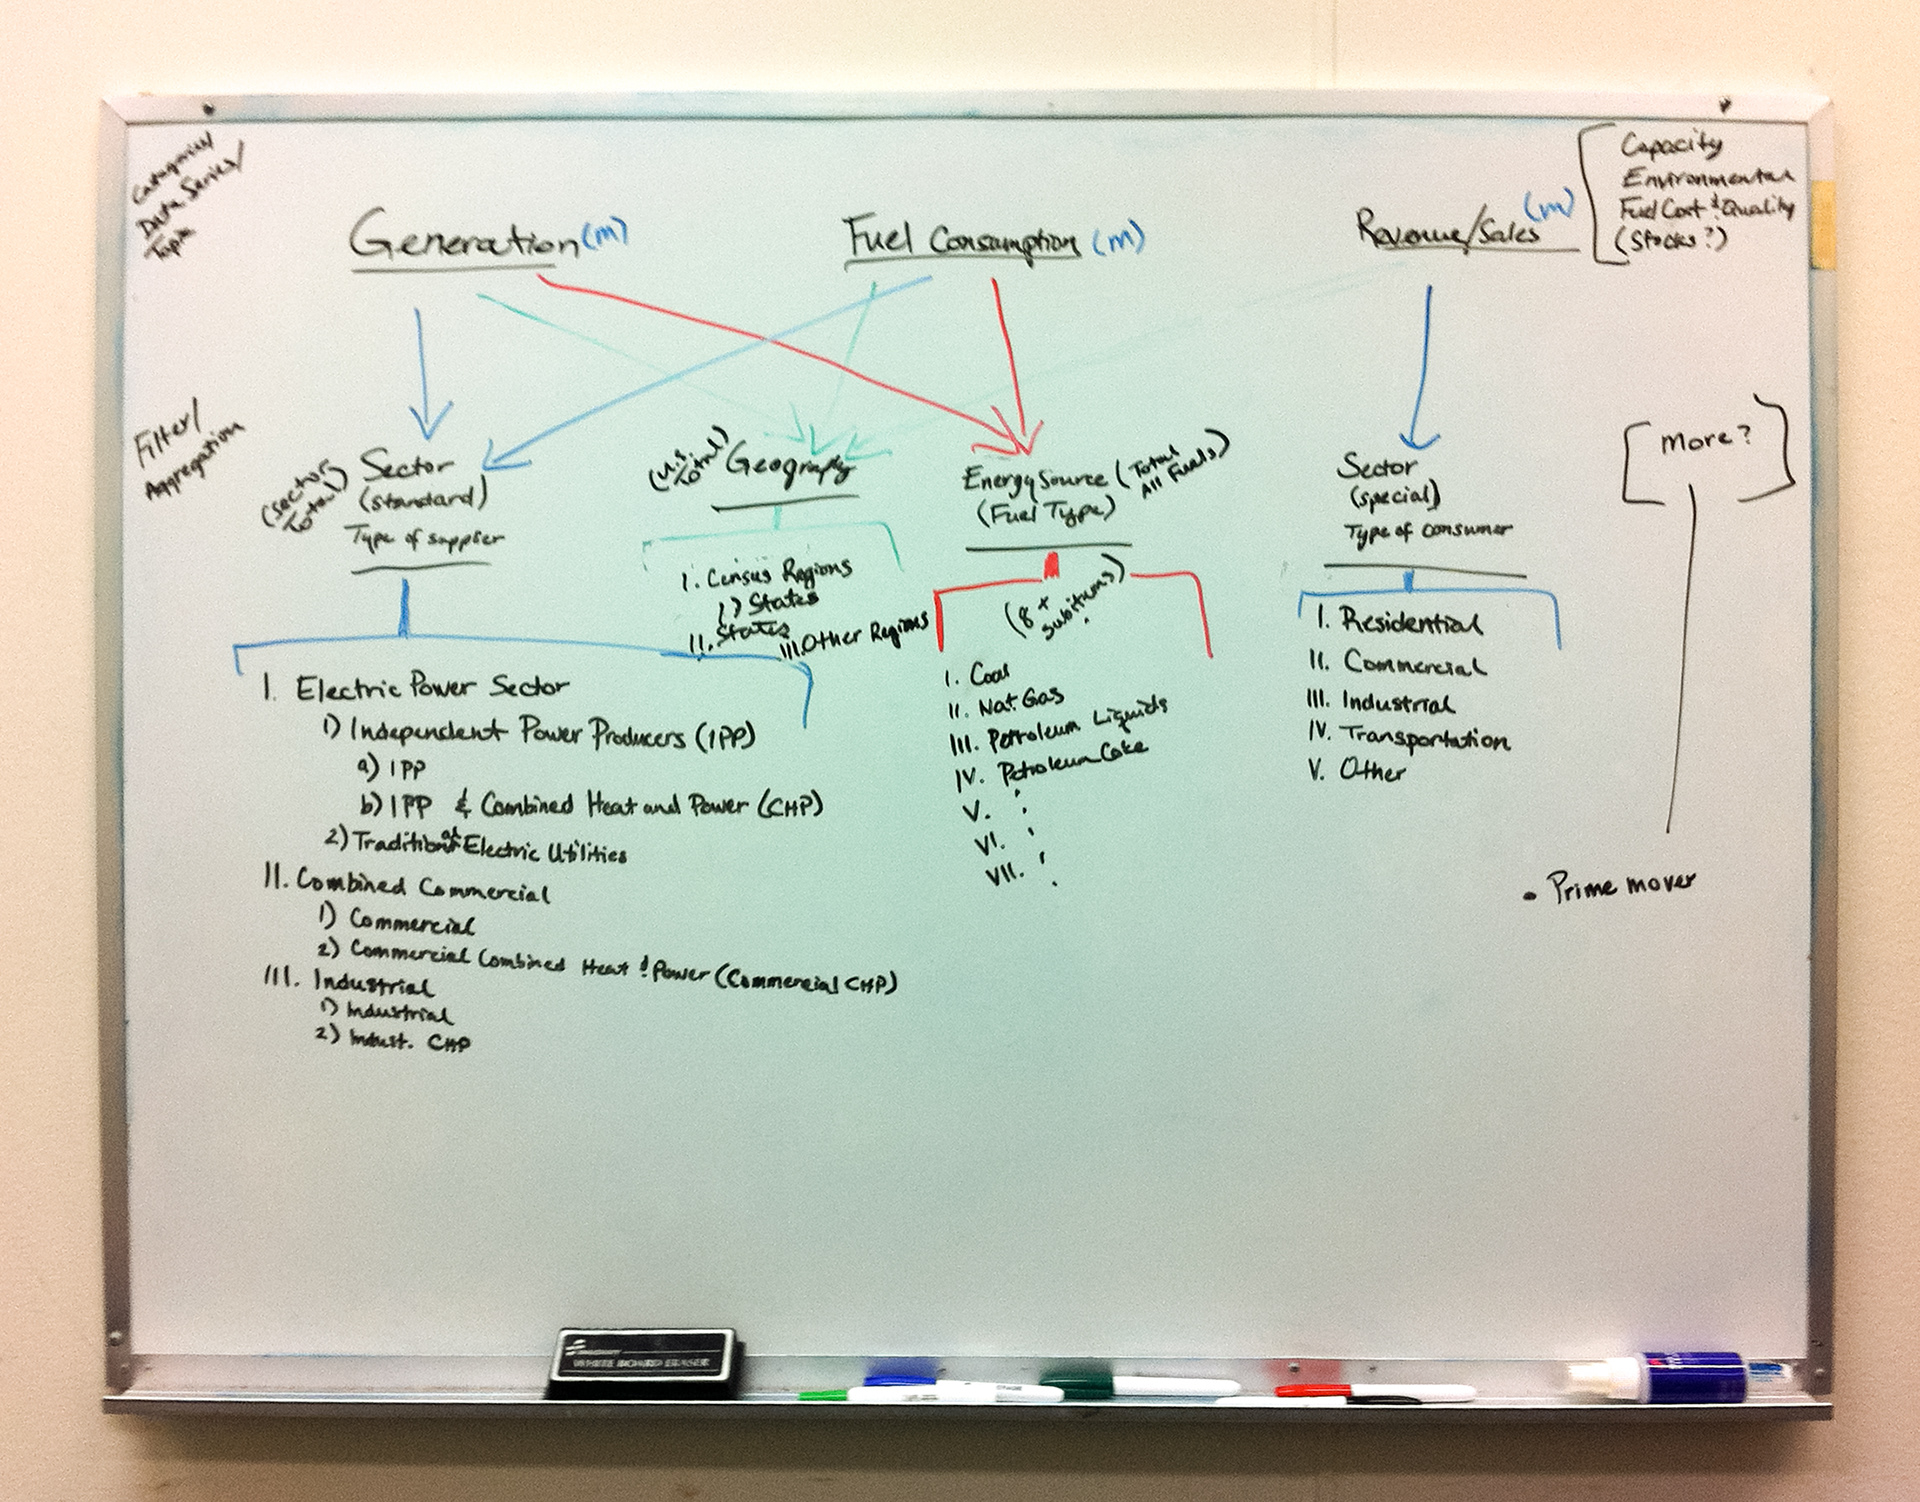 Categories/
Data Series/
Topic
Generation (m)
Fuel Consumption (m)
Revenue/Sales (m)
Capacity
Environmental
Fuel Cost & Quality
(Stocks?)
Filter/
Aggregation
(Sector
Total)
Sector
(standard)
Type of supplier
(U.S.
Total)
Geography
Energy Source (Total
All Fuels)
(Fuel Type)
Sector
(special)
Type of consumer
[more?]
I. Census Regions
1) States
II. States
III. Other Regions
(8+
subitems)
I. Electric Power Sector
1) Independent Power Producers (IPP)
a) IPP
b) IPP & Combined Heat and Power (CHP)
2) Traditional Electric Utilities
II. Combined Commercial
1) Commercial
2) Commercial Combined Heat & Power (Commercial CHP)
III. Industrial
1) Industrial
2) Indust. CHP
I. Coal
II. Nat Gas
III. Petroleum Liquids
IV. Petroleum Coke
V.
VI.
VII.
I. Residential
II. Commercial
III. Industrial
IV. Transportation
V. Other
• Prime mover
WHITE BOARD ERASER